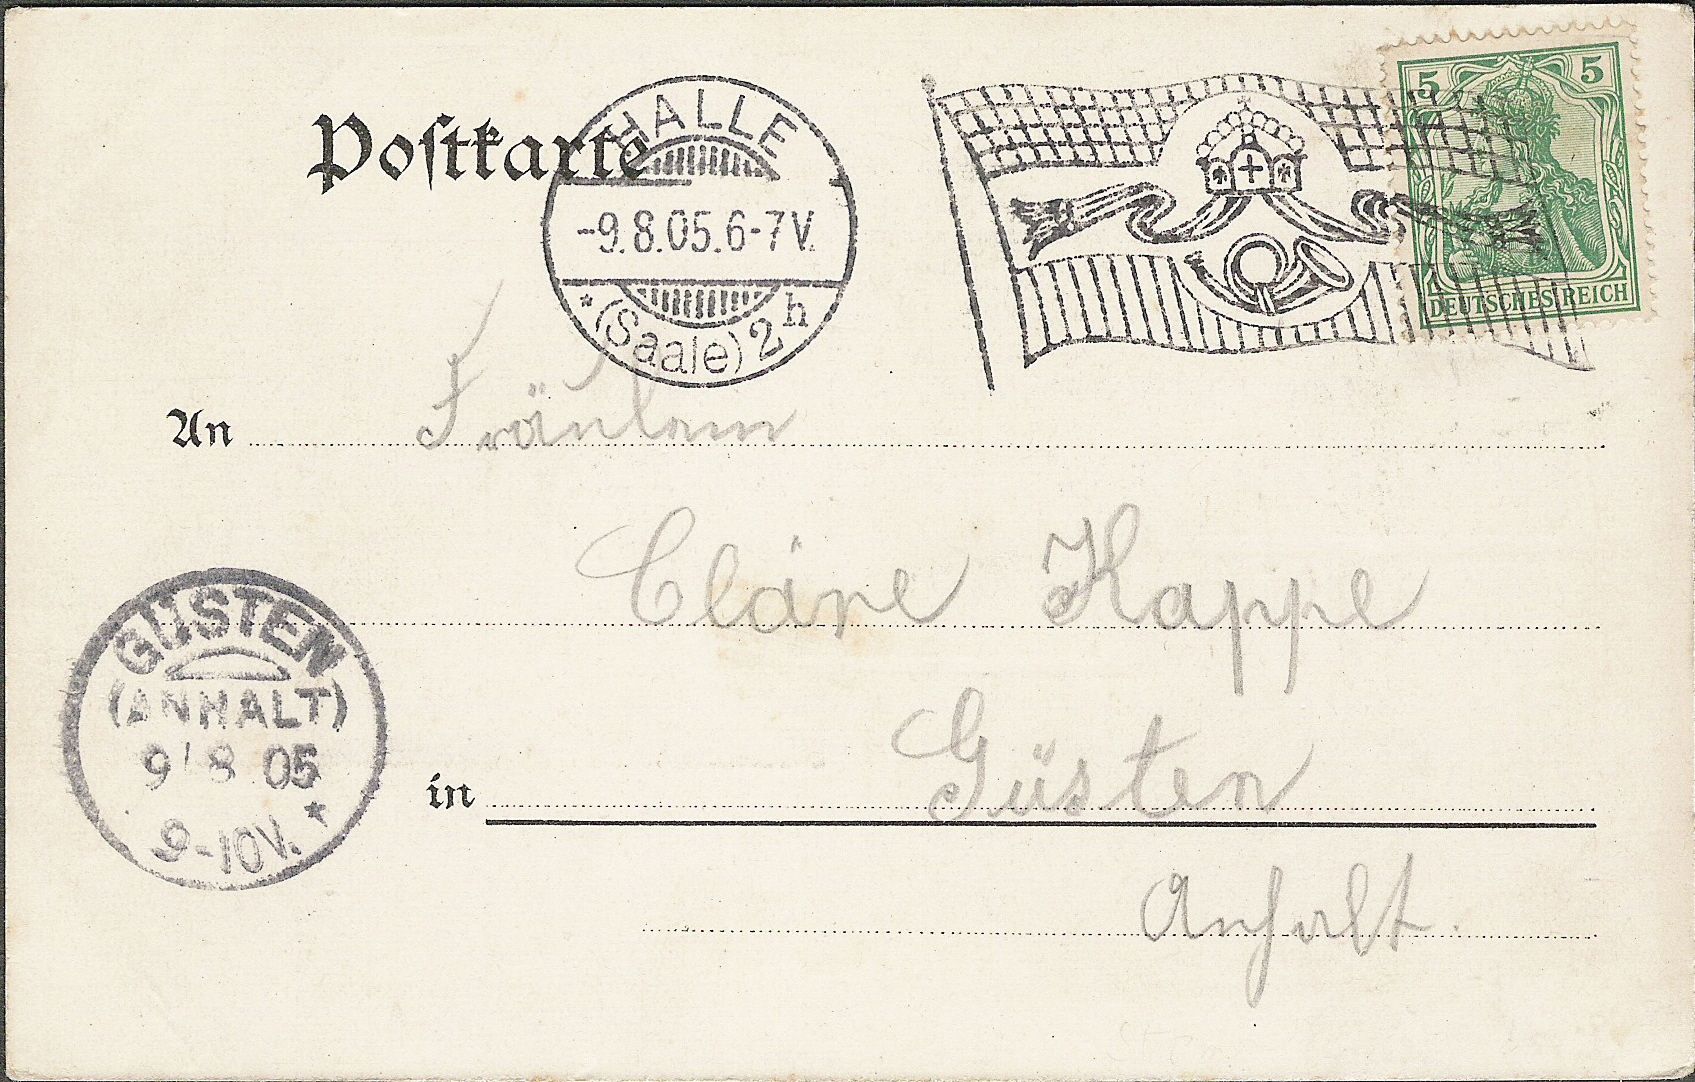 Postkarte
HALLE
-9.8.05.6-7V.
* (Saale) 2 h
5 5
DEUTSCHES REICH
An Fräulein
Cläre Kappe
GÜSTEN
(ANHALT)
9 8 05
9-10V. *
in Güsten
Anhalt.